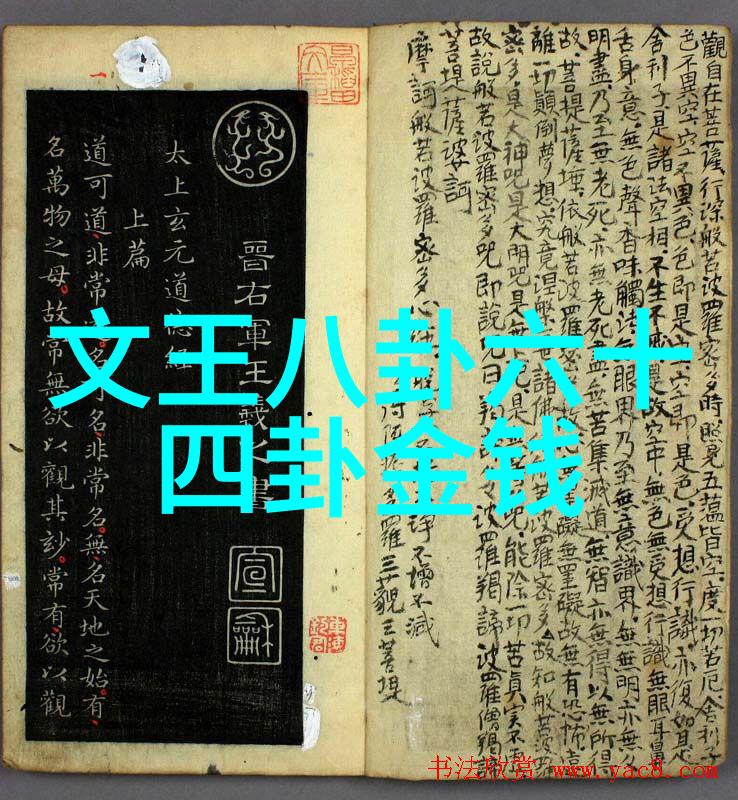 文王八卦六十
四卦金钱
晉右軍王羲之書
太上玄元道德經
上篇
道可道非常名可名非常名無名天地之始有
名萬物之母故常無欲以觀其妙常有欲以觀
宣龢
觀自在菩薩行深般若波羅蜜多時照見五蘊皆空度一切苦厄舍利子
色不異空空不異色色即是空空即是色受想行識亦復如是
舍利子是諸法空相不生不滅故空中無色無受想行識無眼耳鼻
舌身意無色聲香味觸法無眼界乃至無意識界無無明亦無
明盡乃至無老死亦無老死盡無苦集滅道無智亦無得以無所得
故菩提薩埵依般若波羅蜜故無罣礙無罣礙故無有恐怖遠
離一切顛倒夢想究竟涅槃世諸佛般若波羅蜜多故知般若波羅
密多是大神咒是大明咒是無咒是咒能除一切苦真实不虛
故說般若波羅密多咒即說咒曰波羅揭諦波羅僧揭諦
菩提薩婆訶
摩訶般若波羅密多心
不增不減
羅三藐三菩提
书法欣赏 www.yac8.com